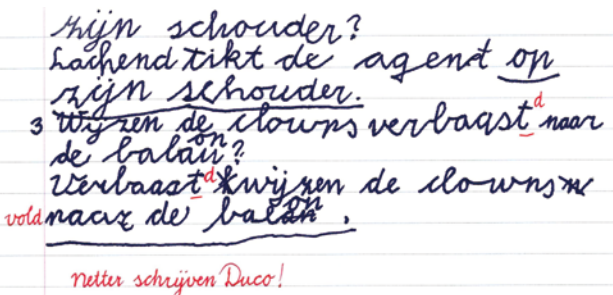 zijn schouder?
Lachend tikt de agent op
zijn schouder.
3 Wijzen de clowns verbaast d naar
de balon?
Verbaast d wijzen de clowns
vold naar de balon.
Netter schrijven Duco!